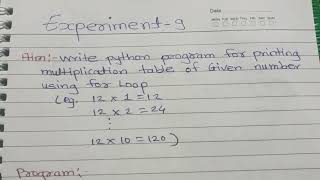 Experiment-9
Date
MON TUE WED THU FRI SAT SUN
Aim:- Write python program for printing
multiplication table of Given number
using for Loop
(eg. 12 x 1 = 12
12 x 2 = 24
⋮
12 x 10 = 120)
Program:-